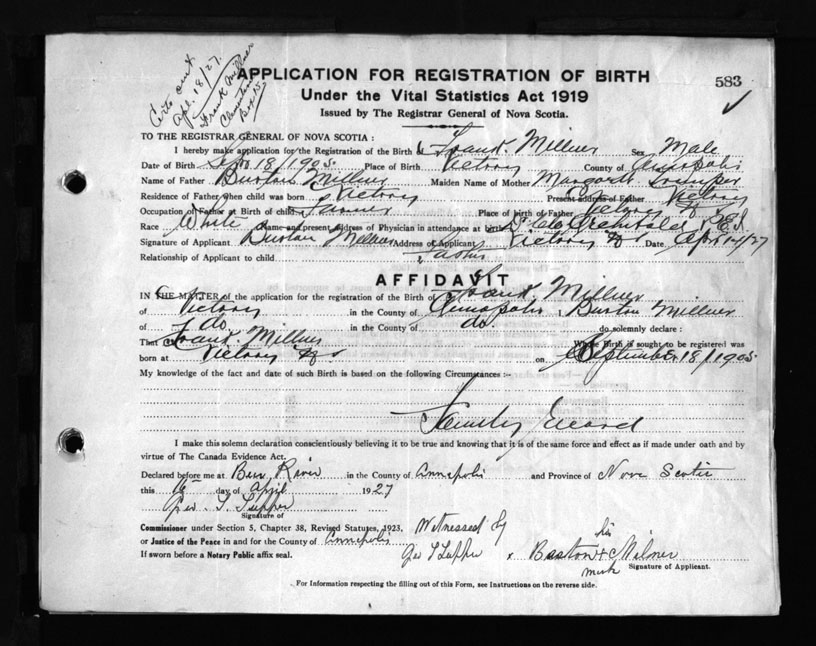 Certs out
Apl. 18/27.
Frank Millner
Clementsvale
Box 15
583
APPLICATION FOR REGISTRATION OF BIRTH
Under the Vital Statistics Act 1919
Issued by The Registrar General of Nova Scotia.
TO THE REGISTRAR GENERAL OF NOVA SCOTIA :
I hereby make application for the Registration of the Birth of Frank. Millner Sex Male
Date of Birth Sept 18/1905. Place of Birth Victory County of Annapolis
Name of Father Burton Millner Maiden Name of Mother Margaret
Residence of Father when child was born Victory Present address of Father Victory
Occupation of Father at Birth of child Farmer Place of birth of Father Victory
Race White Name and present address of Physician in attendance at birth
Signature of Applicant Burton Millner Address of Applicant Victory NS Date Apr 14/27
Relationship of Applicant to child Father
AFFIDAVIT
IN THE MATTER of the application for the registration of the Birth of Frank. Millner
of Victory in the County of Annapolis I Burton Millner
of do in the County of do. do solemnly declare :
That Frank. Millner Whose Birth is sought to be registered was
born at Victory NS on September 18/1905
My knowledge of the fact and date of such Birth is based on the following Circumstances :-
Family Record
I make this solemn declaration conscientiously believing it to be true and knowing that it is of the same force and effect as if made under oath and by
virtue of The Canada Evidence Act.
Declared before me at Bear River in the County of Annapolis and Province of Nova Scotia
this 16 day of April 1927
Geo. T Tupper
Signature of
Commissioner under Section 5, Chapter 38, Revised Statutes, 1923,
or Justice of the Peace in and for the County of Annapolis
If sworn before a Notary Public affix seal.
Witnessed by
Geo T Tupper
his
x Burton + Milner
mark
Signature of Applicant.
For Information respecting the filling out of this Form, see Instructions on the reverse side.